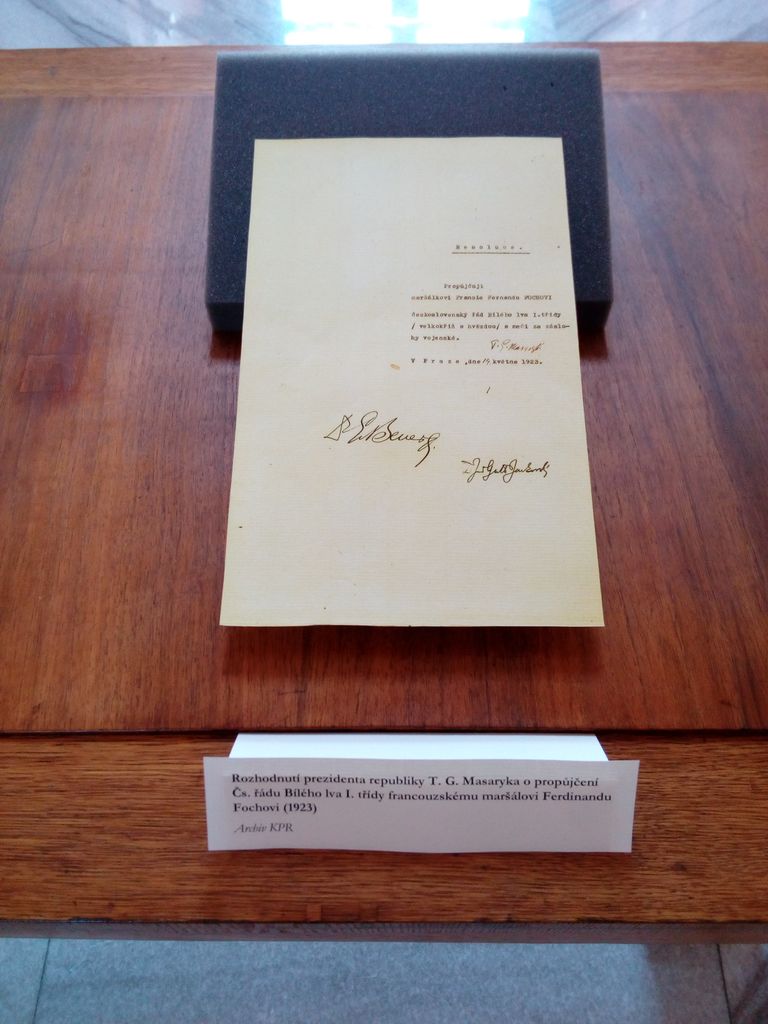 Resoluce.
Propůjčuji
maršálkovi Francie Fernandu FOCHOVI
Československý řád Bílého lva I.třídy
/ velkokříž s hvězdou/ s meči za záslu-
hy vojenské.
T. G. Masaryk
V Praze ,dne 14 května 1923.
Dr E Beneš.
Rozhodnutí prezidenta republiky T. G. Masaryka o propůjčení
Čs. řádu Bílého lva I. třídy francouzskému maršálovi Ferdinandu
Fochovi (1923)
Archiv KPR